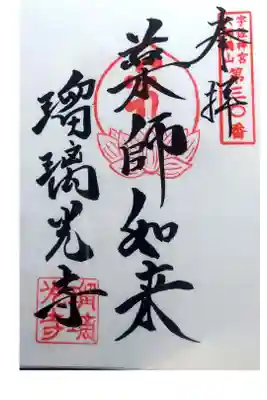 奉拝
宇佐神宮
山
第三〇番
薬師如来
瑠璃光寺
瑠璃
光寺